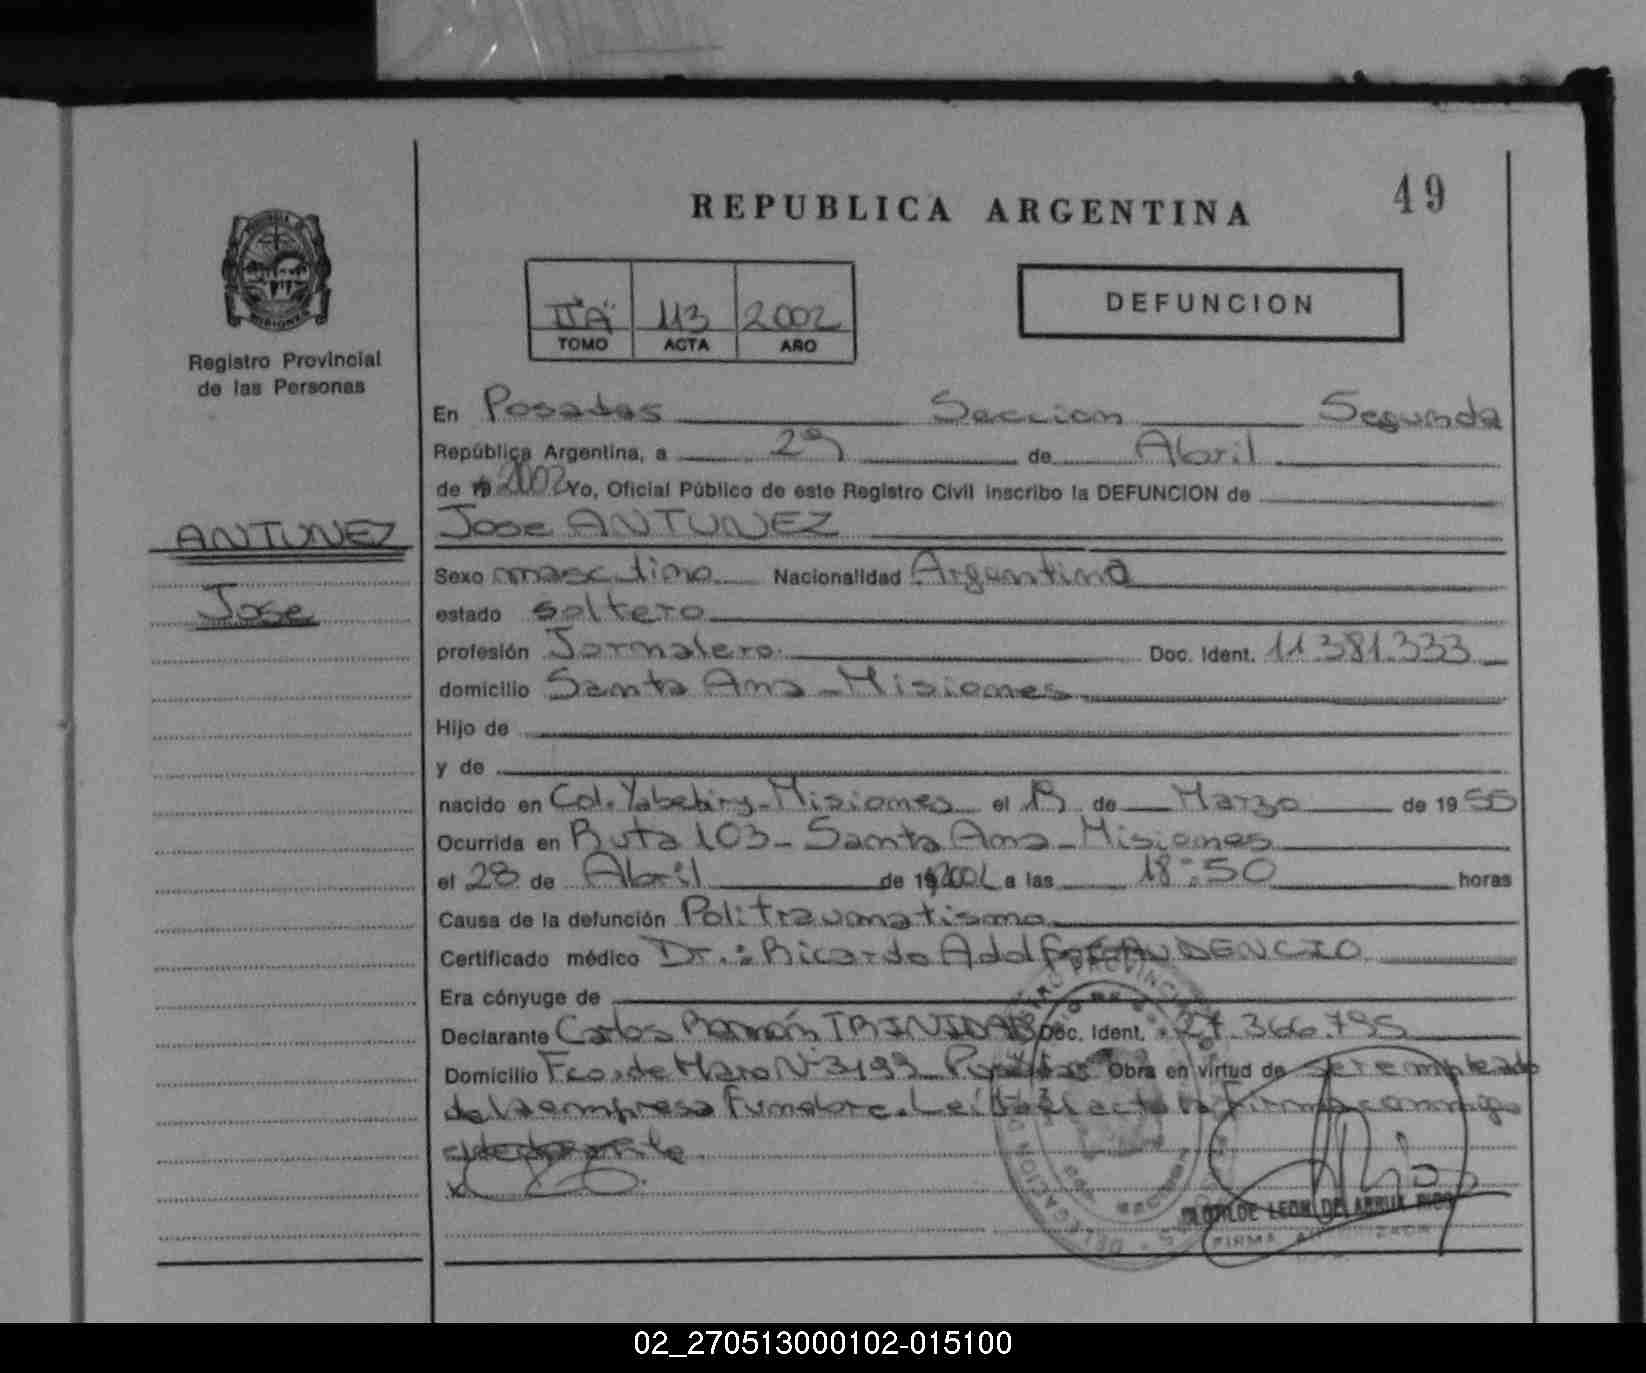 49
REPUBLICA ARGENTINA
MISIONES
Registro Provincial
de las Personas
II"A" 113 2002
TOMO ACTA AÑO
DEFUNCION
En Posadas Seccion Segunda
República Argentina, a 29 de Abril
de 2002 Yo, Oficial Público de este Registro Civil inscribo la DEFUNCION de
ANTUNEZ
Jose ANTUNEZ
Sexo masculino Nacionalidad Argentina
Jose
estado soltero
profesión Jornalero. Doc. Ident. 11.381.333
domicilio Santa Ana - Misiones
Hijo de
y de
nacido en Col. Yabebiry - Misiones el de Marzo de 1955
Ocurrida en Ruta 103 - Santa Ana - Misiones
el 28 de Abril de 2002 a las 18:50 horas
Causa de la defunción Politraumatismo
Certificado médico Dr.: Ricardo Adolfo GAUDENCIO
Era cónyuge de
Declarante Carlos Ramón TRINIDAD Doc. Ident. 27.366.795
Domicilio Fco. de Haro Nº 3193 Posadas Obra en virtud de ser empleado
de la empresa Funebre. Leída el acta la firma conmigo
el declarante
CLOTILDE LEON DE ARRUA RIOS
FIRMA AUTORIZADA
02_270513000102-015100